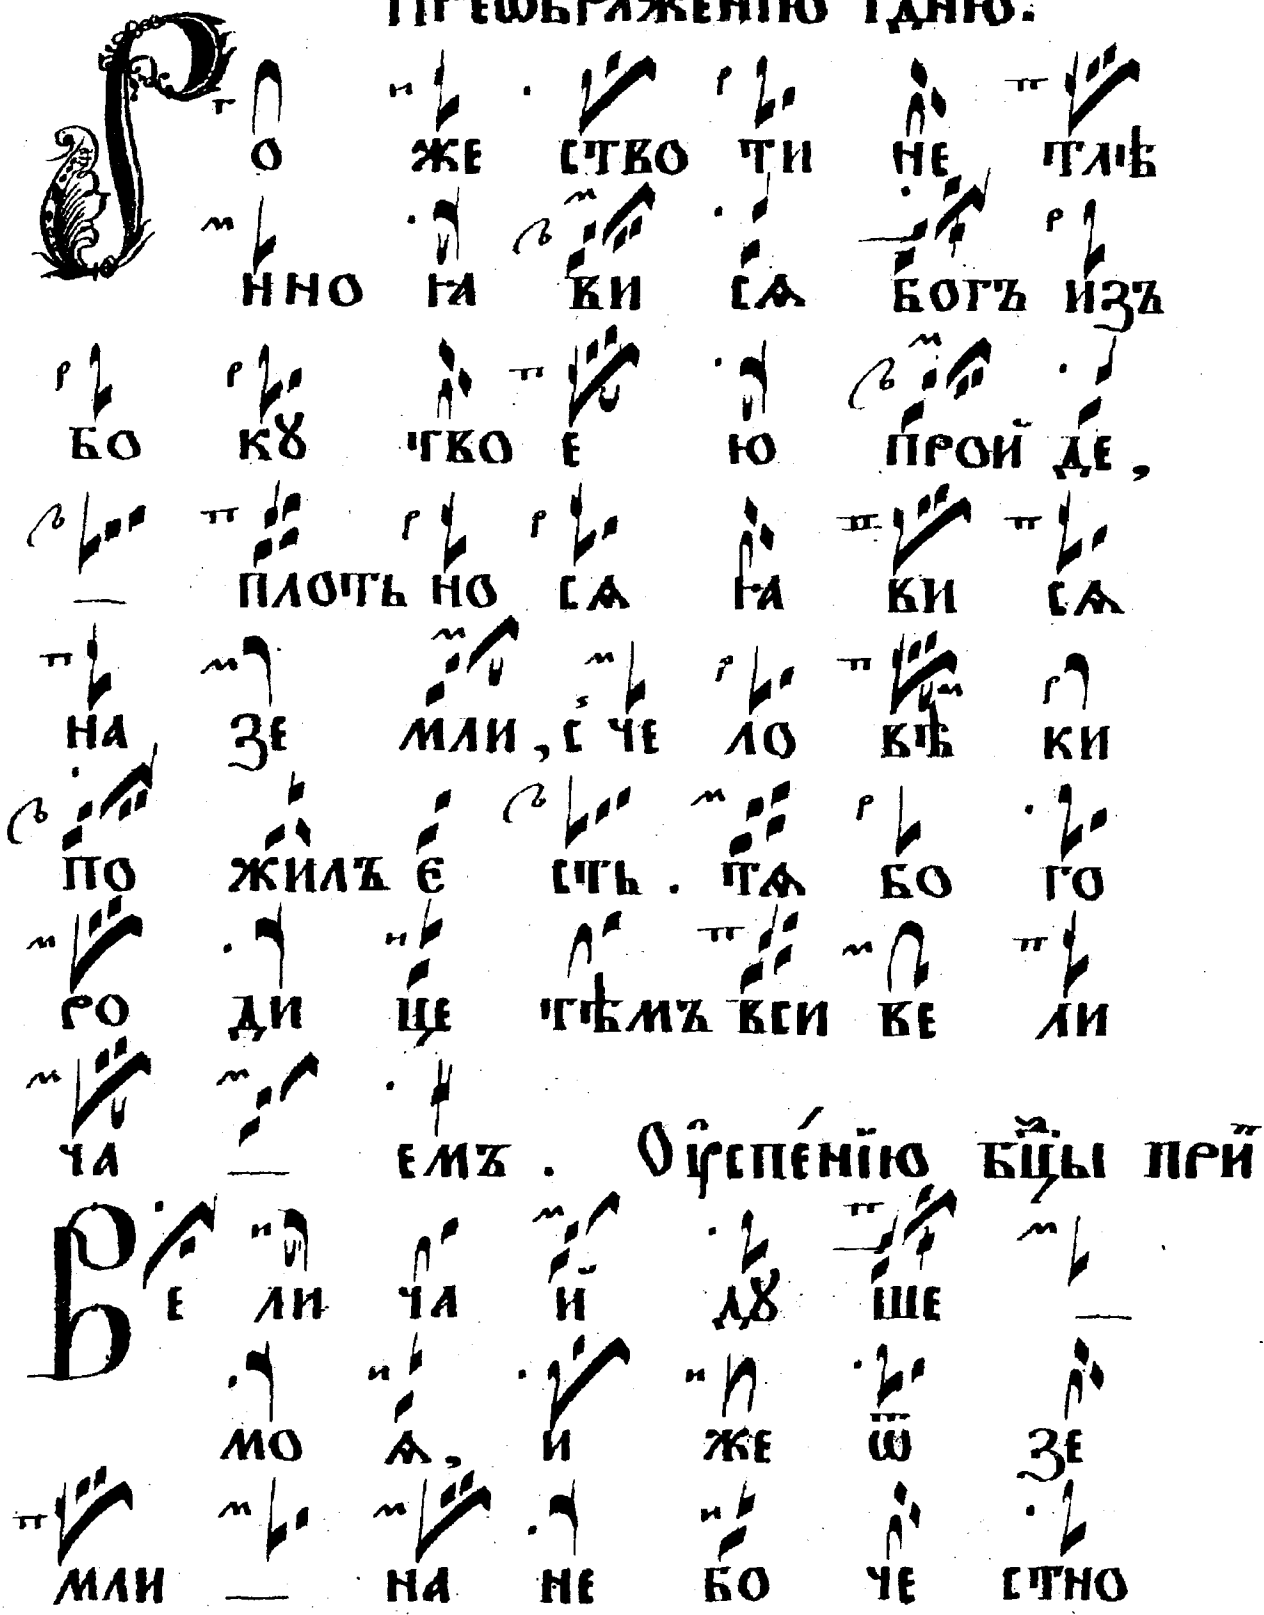 Преѡбраженїю і҆дню.
Ро же ство ти не тлѣ
нно ꙗ ви сѧ богъ изъ
бо кꙋ тво е ю прой де,
плоть но сѧ ꙗ ви сѧ
на зе мли, с че ло вѣ ки
по жилъ є сть. тѧ бо го
ро ди це тѣмъ вси ве ли
ча емъ. Оуспе́нїю бцⷣы прй
Ве ли ча й дꙋ ше
мо ѧ, и же ѿ зе
мли на не бо че стно